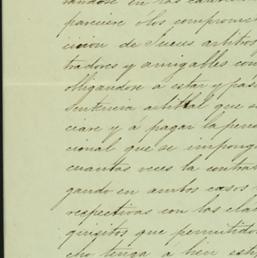 parecere o los comprome
cision de Jueces arbitros
tradores y amigables com
obligandose a estar y pasa
Sentencia arbitral que se
ciare y á pagar la pena
cional que se imponga
cuantas veces la contra
gando en ambos casos
respectivas con las cla
quisitos que permitido
cho tenga á bien esti